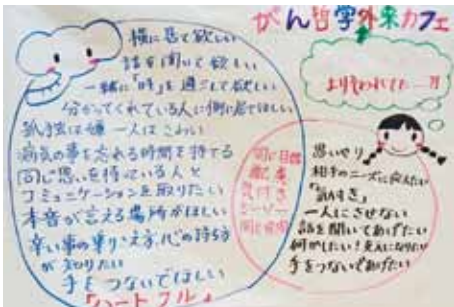 がん哲学外来カフェ
横に居て欲しい
話を聞いて欲しい
一緒に「時」を過ごして欲しい
分かってくれている人に側に居てほしい
孤独は嫌 一人はこわい
病気の事を忘れる時間を持てる
同じ思いを持っている人と
コミュニケーションを取りたい
本音が言える場所がほしい
辛い事の乗りこえ方、心の持ち方
が知りたい
手をつないでほしい
「ハートフル」
同じ目標
思いやり
相手のニーズに応えたい
一人にさせない
話を聞いてあげたい
何かしたい!友人になりたい
手をつないであげたい